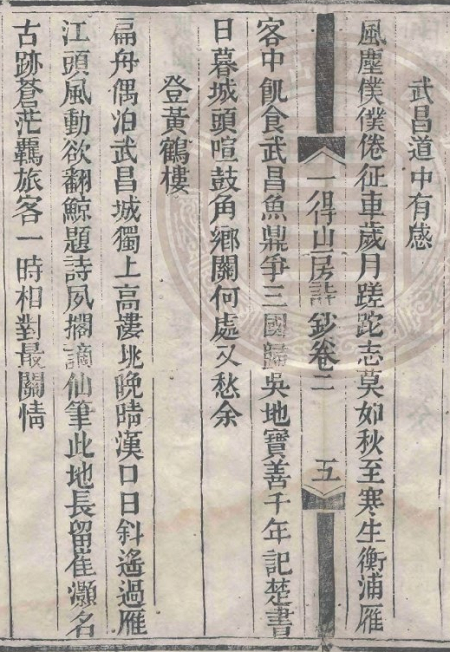 武昌道中有感
風塵僕僕倦征車歲月蹉跎志莫如秋至寒生衡浦雁
一得山房詩鈔卷二 五
客中飢食武昌魚鼎爭三國歸吳地寶善千年記楚書
日暮城頭喧鼓角鄉關何處又愁余
登黃鶴樓
扁舟偶泊武昌城獨上高樓眺晚晴漢口日斜遙過雁
江頭風動欲翻鯨題詩夙擱謫仙筆此地長留崔灝名
古跡蒼茫羈旅客一時相對最關情